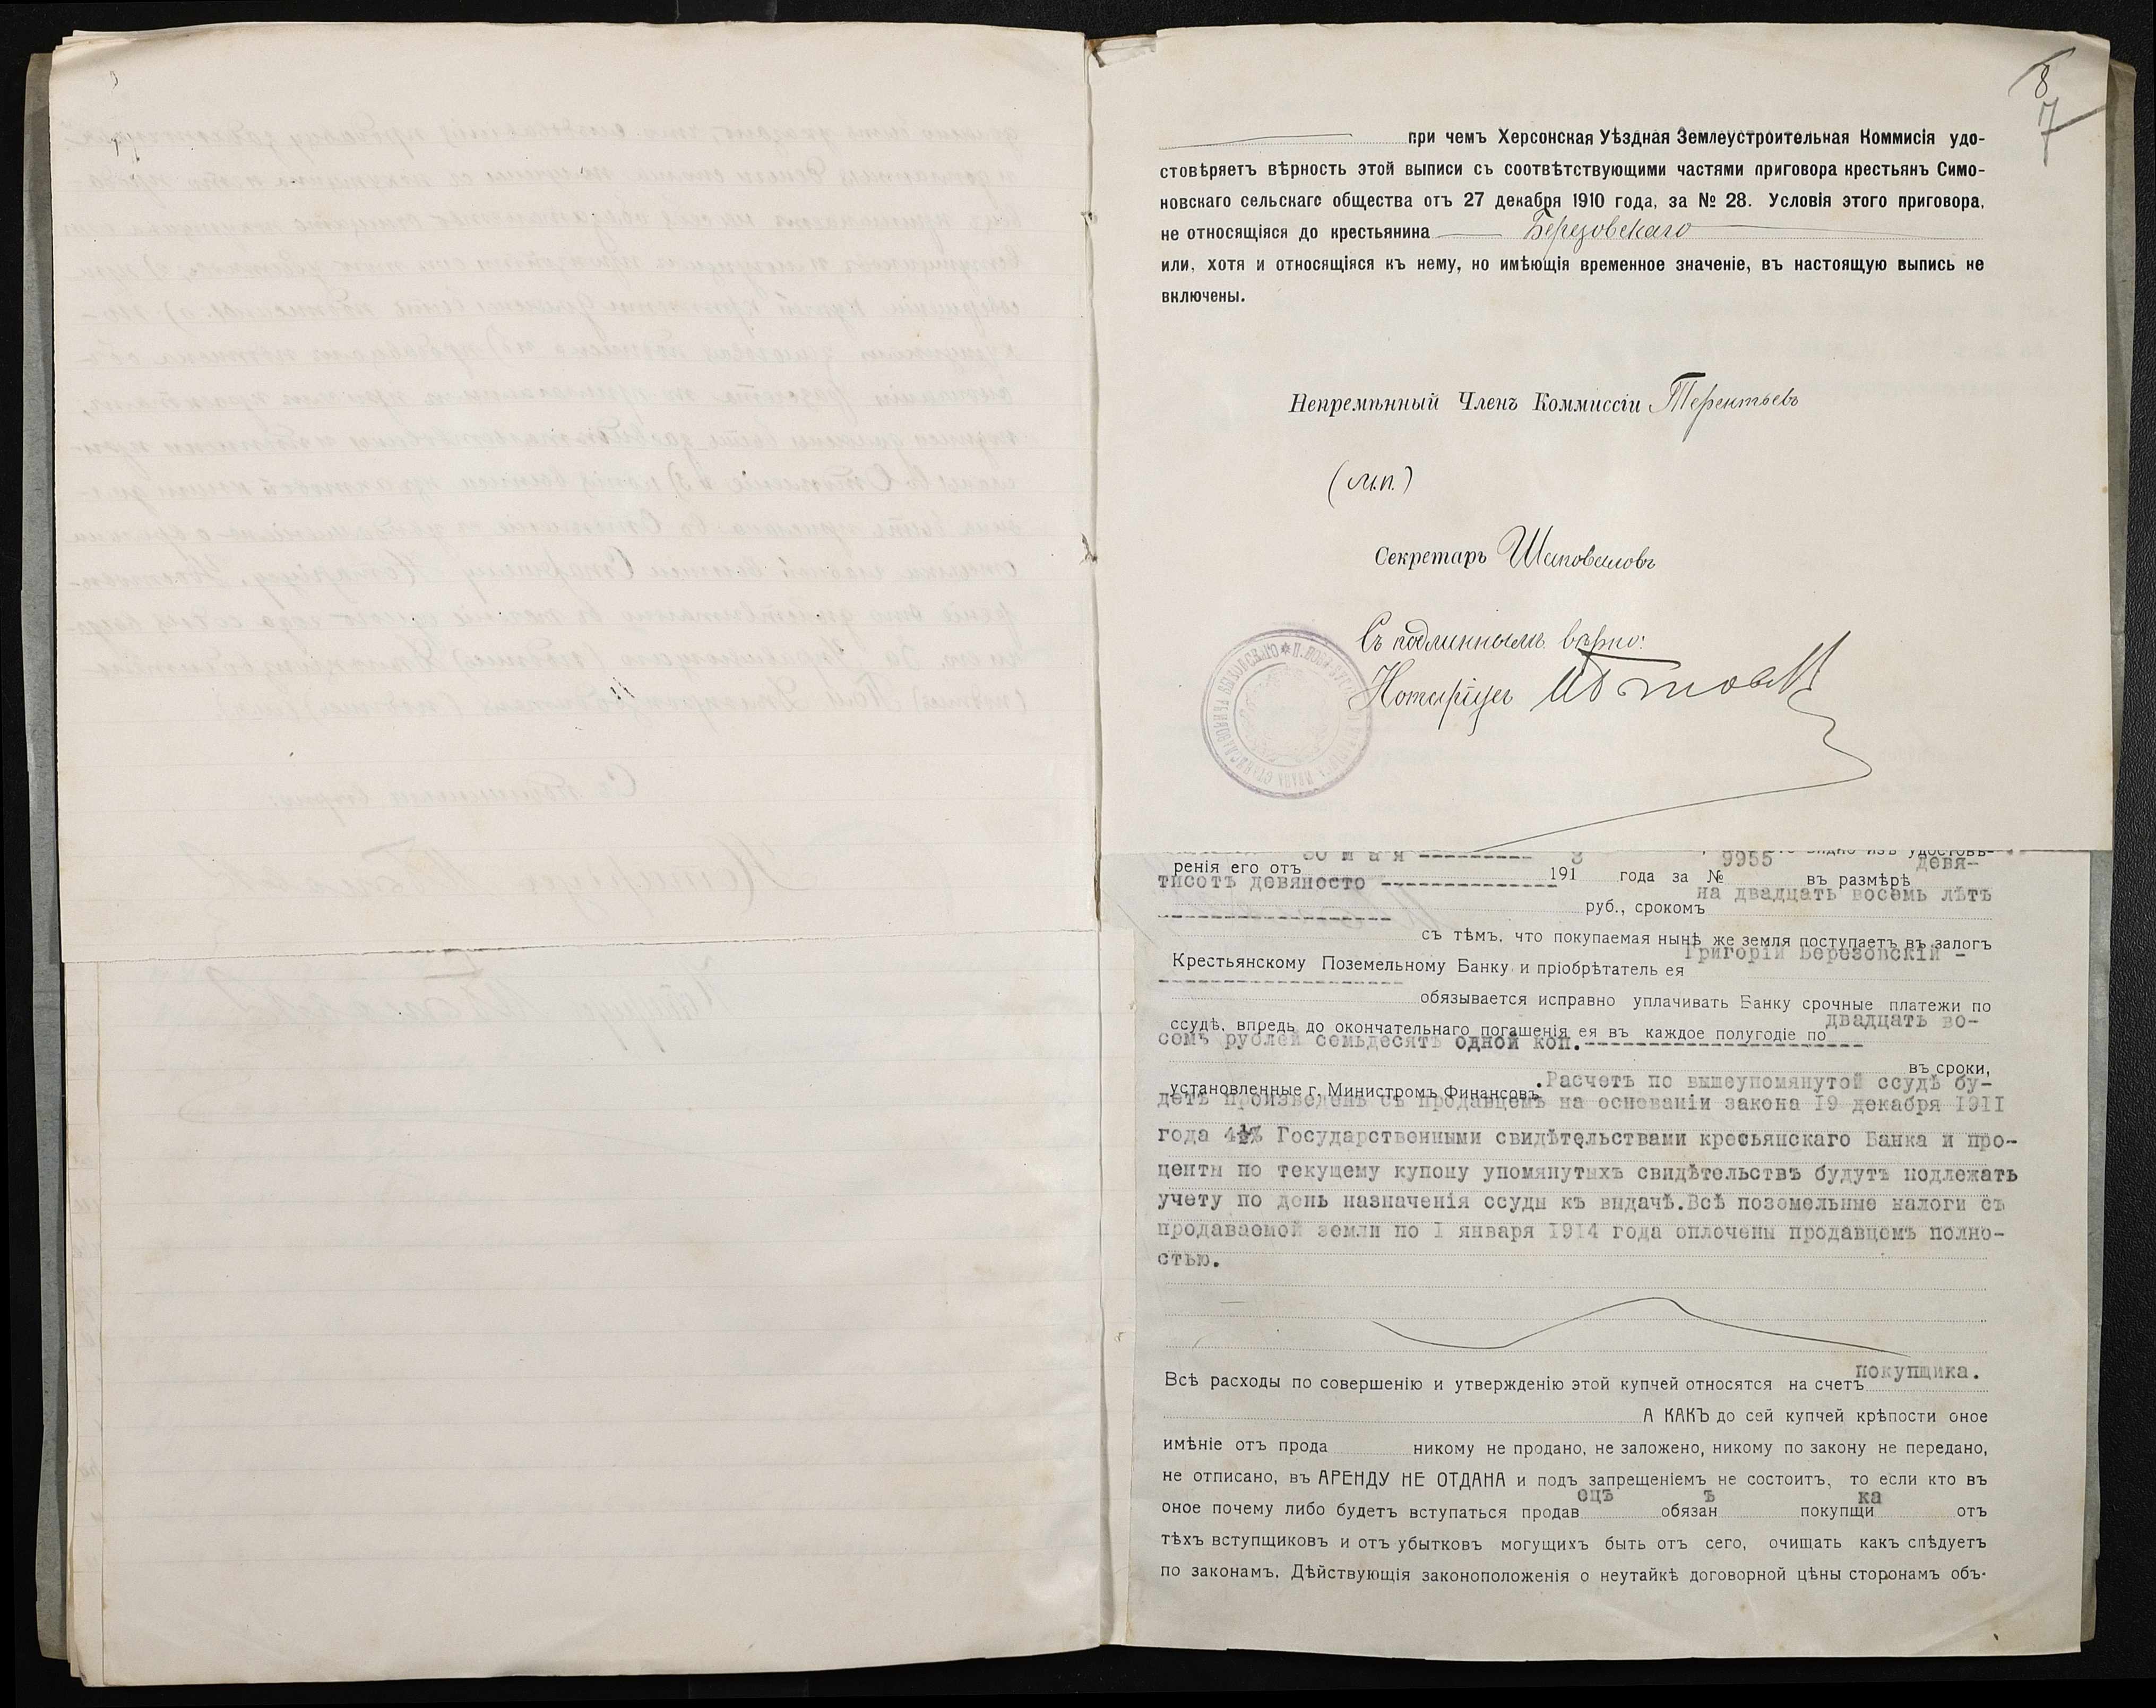 8
7
при чемъ Херсонская Уѣздная Землеустроительная Коммисія удо-
стовѣряетъ вѣрность этой выписи съ соотвѣтствующими частями приговора крестьянъ Симо-
новскаго сельскаго общества отъ 27 декабря 1910 года, за № 28. Условія этого приговора,
не относящіяся до крестьянина Березовскаго
или, хотя и относящіяся къ нему, но имѣющія временное значеніе, въ настоящую выпись не
включены.
Непремѣнный Членъ Коммиссіи Терентьевъ
(м.п.)
Секретарь Шаповаловъ
Съ подлиннымъ вѣрно:
Нотаріусъ
видно изъ удостовѣ-
ренія его отъ 30 мая 1913 года за № 9955 въ размѣрѣ девя-
тисотъ девяносто
руб., срокомъ на двадцать восемь лѣтъ
съ тѣмъ, что покупаемая нынѣ же земля поступаетъ въ залогъ
Крестьянскому Поземельному Банку и пріобрѣтатель ея Григорій Березовскій -
обязывается исправно уплачивать Банку срочные платежи по
ссудѣ, впредь до окончательнаго погашенія ея въ каждое полугодіе по двадцать во-
семь рублей семьдесятъ одной коп.
въ сроки,
установленные г. Министромъ Финансовъ. Расчетъ по вышеупомянутой ссудѣ бу-
детъ произведенъ съ продавцемъ на основаніи закона 19 декабря 1911
года 4½% Государственными свидѣтельствами кресьянскаго Банка и про-
центы по текущему купону упомянутыхъ свидѣтельствъ будутъ подлежать
учету по день назначенія ссуды къ выдачѣ.Всѣ поземельные налоги съ
продаваемой земли по I января 1914 года оплочены продавцемъ полно-
стью.
Всѣ расходы по совершенію и утвержденію этой купчей относятся на счетъ покупщика.
А КАКЪ до сей купчей крѣпости оное
имѣніе отъ прода никому не продано, не заложено, никому по закону не передано,
не отписано, въ АРЕНДУ НЕ ОТДАНА и подъ запрещеніемъ не состоитъ, то если кто въ
оное почему либо будетъ вступаться продавецъ обязанъ покупщика отъ
тѣхъ вступщиковъ и отъ убытковъ могущихъ быть отъ сего, очищать какъ слѣдуетъ
по законамъ. Дѣйствующія законоположенія о неутайкѣ договорной цѣны сторонамъ объ-